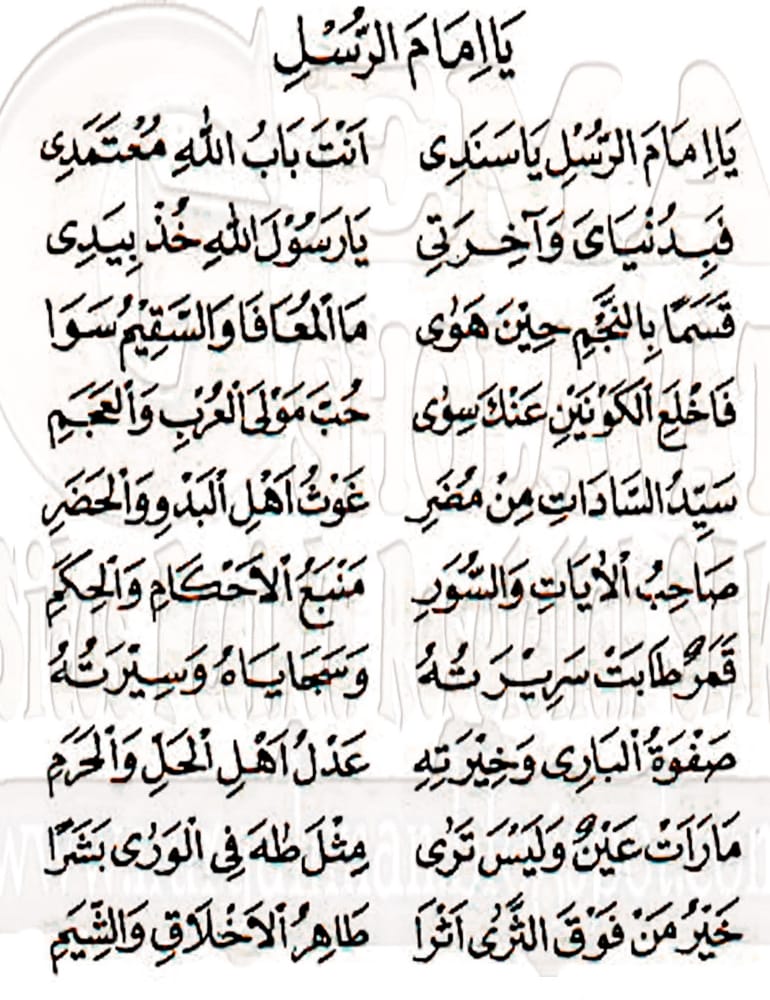 يَا اِمَامَ الرُّسْلِ
يَا اِمَامَ الرُّسْلِ يَا سَنَدِى اَنْتَ بَابُ اللهِ مُعْتَمَدِى
فَبِدُنْيَايَ وَآخِرَتِي يَارَسُوْلَ اللهِ خُذْ بِيَدِى
قَسَمًا بِالنَّجْمِ حِيْنَ هَوٰى مَا الْمُعَافَا وَالسَّقِيْمُ سَوَا
فَاخْلَعِ الْكَوْنَيْنِ عَنْكَ سِوٰى حُبَّ مَوْلَى الْعُرْبِ وَالْعَجَمِ
سَيِّدُ السَّادَاتِ مِنْ مُضَرِ غَوْثُ اَهْلِ الْبَدْوِ وَالْحَضَرِ
صَاحِبُ الْاٰيَاتِ وَالسُّوَرِ مَنْبَعُ الْاَحْكَامِ وَالْحِكَمِ
قَمَرٌ طَابَتْ سَرِيْرَتُهُ وَسَجَايَاهُ وَسِيْرَتُهُ
صَفْوَةُ الْبَارِى وَخِيْرَتِهِ عَدْلُ اَهْلِ الْحَلِّ وَالْحَرَمِ
مَارَاَتْ عَيْنٌ وَلَيْسَ تَرٰى مِثْلَ طٰهَ فِى الْوَرٰى بَشَرًا
خَيْرُ مَنْ فَوْقَ الثَّرٰى اَثْرَا طَاهِرُ الْاَخْلَاقِ وَالشِّيَمِ